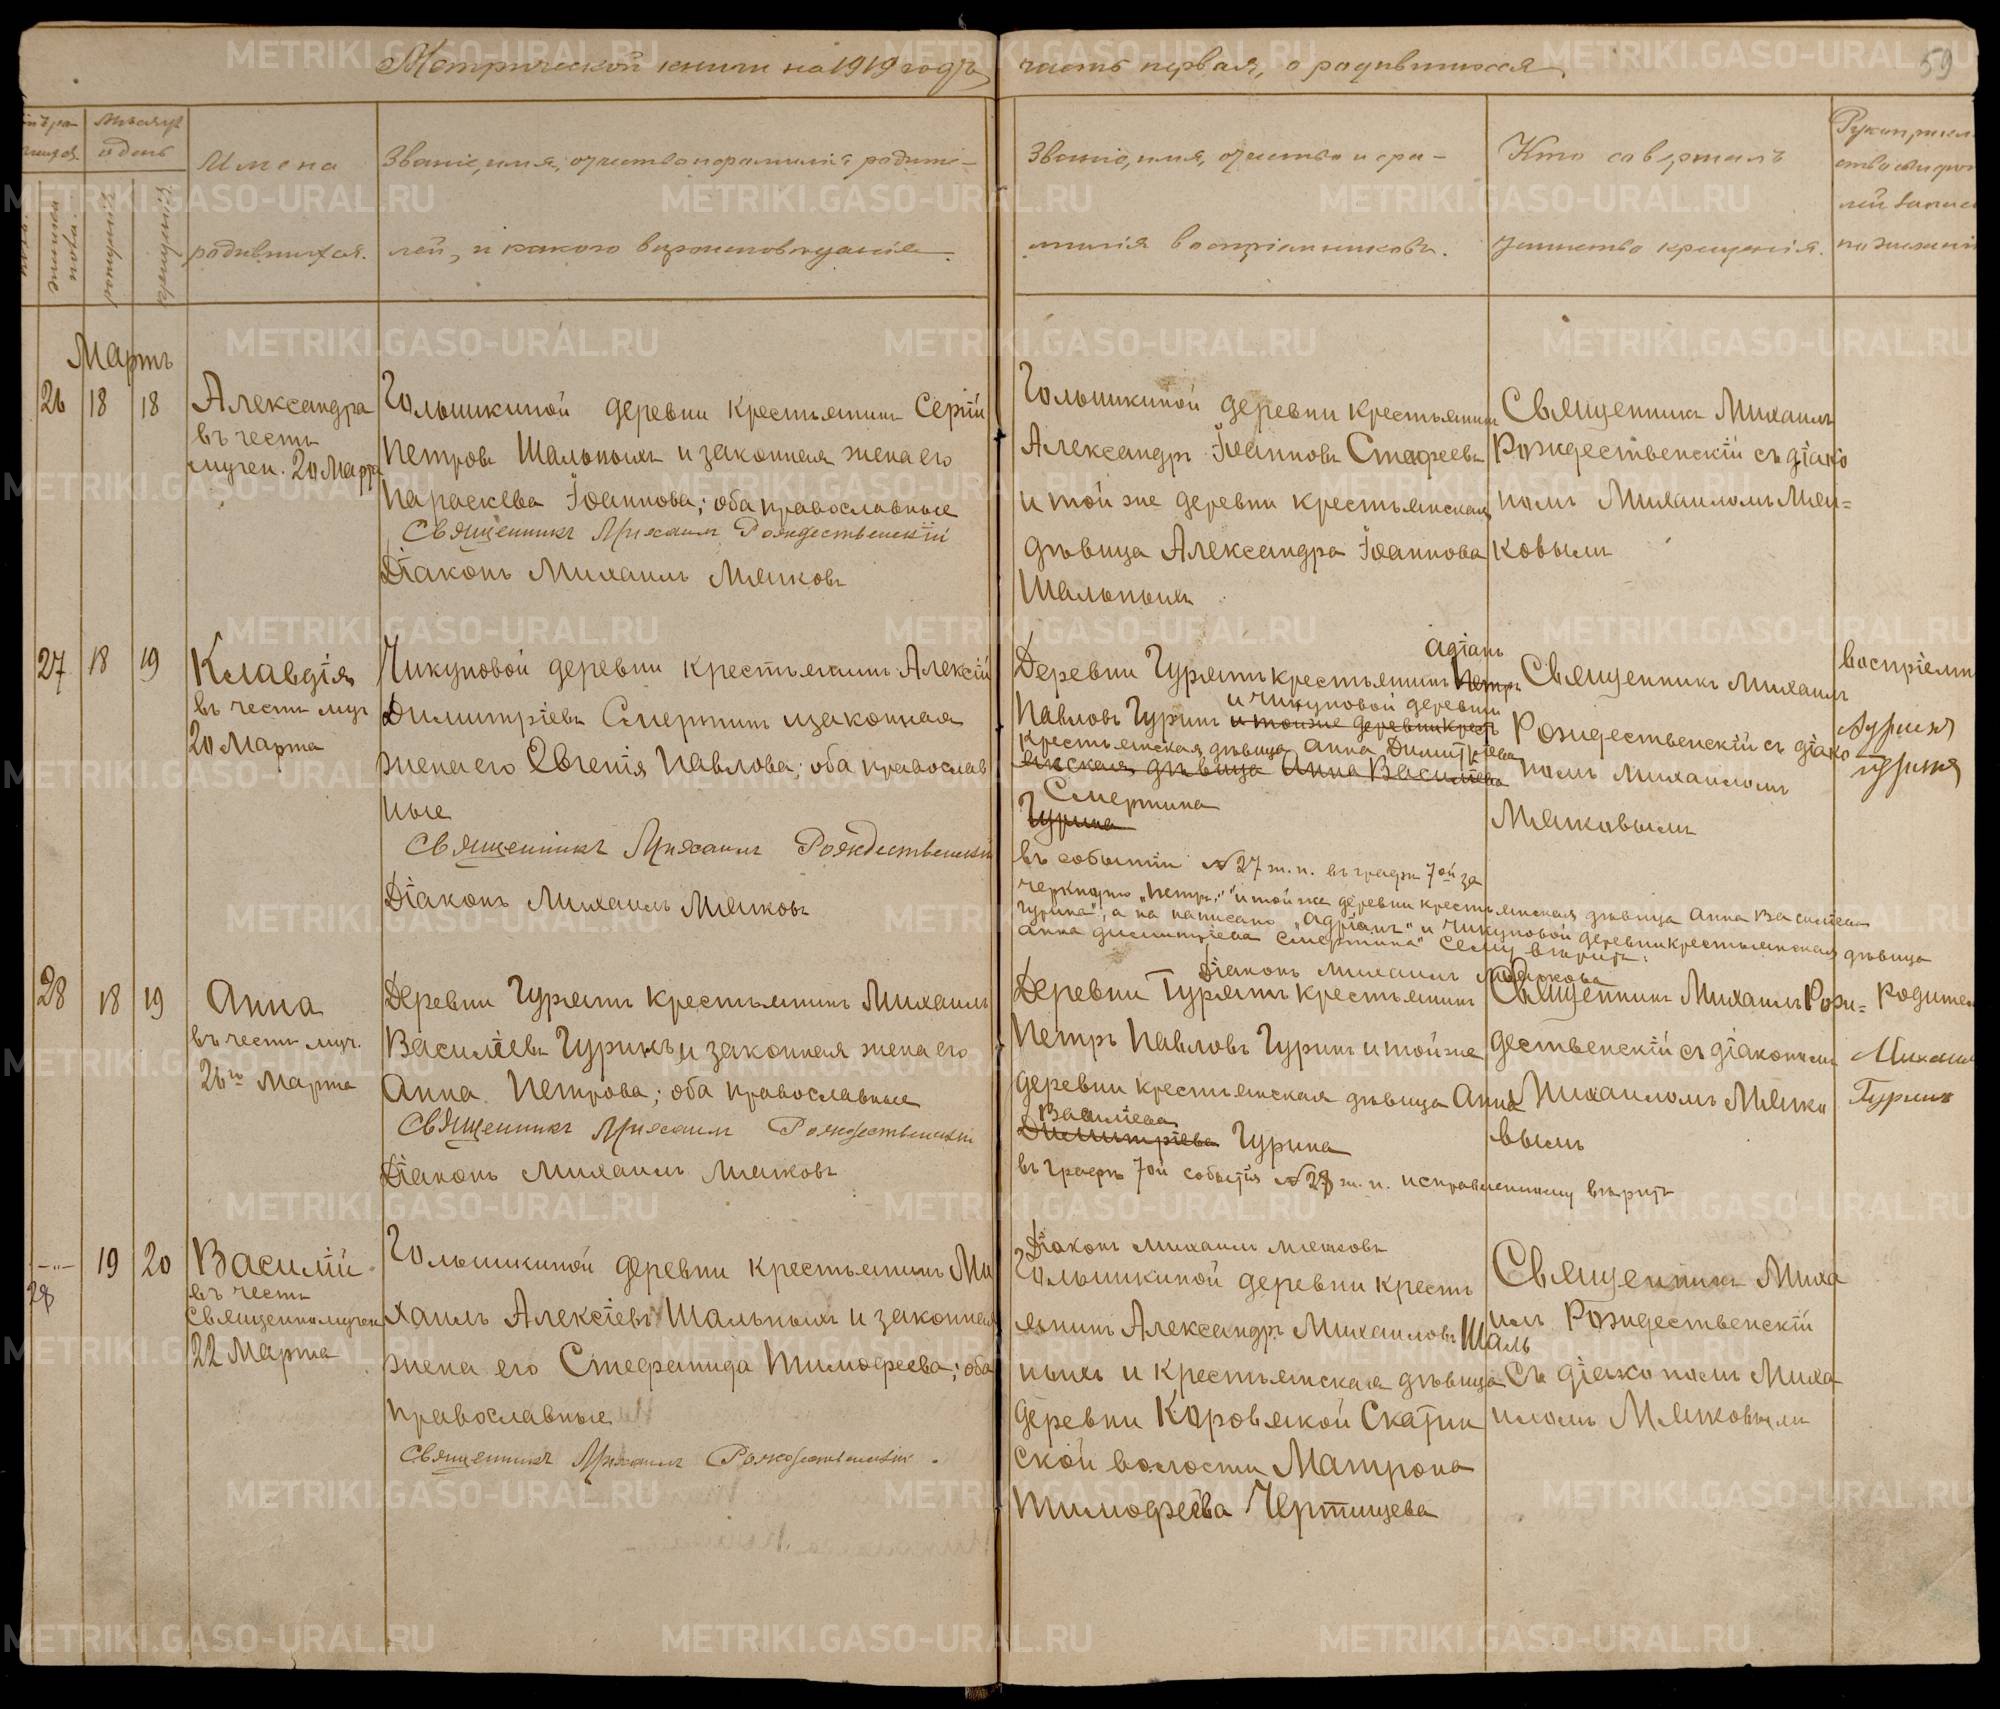 METRIKI.GASO-URAL.RU
Метрической книги на 1919 годъ часть первая, о родившихся
59
Имена родившихся.
Званіе, имя, отчество и фамилія родите-
лей, и какого вѣроисповѣданія.
Званіе, имя, отчество и фа-
милія воспріемниковъ.
Кто совершалъ
таинство крещенія.
Мартъ
26 18 18
Александра
въ честь
мучен. 20 Марта
Голышкиной деревни крестьянинъ Сергій
Петровъ Шальныхъ и законная жена его
Параскева Іоаннова; оба православные
Священникъ Михаилъ Рождественскій
Діаконъ Михаилъ Мяковъ
Голышкиной деревни крестьянинъ
Александръ Іоанновъ Стафеевъ
и той же деревни крестьянская
дѣвица Александра Іоаннова
Шальныхъ
Священникъ Михаилъ
Рождественскій съ діако
номъ Михаиломъ Мяч-
ковымъ
27 18 19
Клавдія
въ честь муч
20 Марта
Чикуновой деревни крестьянинъ Алексій
Димитріевъ Смертинъ и законная
жена его Евгенія Павлова; оба православ
ные
Священникъ Михаилъ Рождественскій
Діаконъ Михаилъ Мяковъ
Адріанъ
Деревни Гурятъ крестьянинъ Петръ
и Чикуновой деревни
Павловъ Гуринъ и той же деревни крест
крестьянская дѣвица Анна Димитріева
янская дѣвица Анна Василіева
Смертина
Гурина
въ событіи № 27 ж. п. въ графѣ 7ой за
черкнуто „Петръ," "и той же деревни крестьянская дѣвица Анна Василіева
Гурина", а на написано „Адріанъ" и Чикуновой деревни крестьянская дѣвица
Анна Димитріева Смертина" сему вѣрить:
Діаконъ Михаилъ
Священникъ Михаилъ
Рождественскій съ діако
номъ Михаиломъ
Мяковымъ
28 18 19
Анна
въ честь муч.
26го Марта
Деревни Гурятъ крестьянинъ Михаилъ
Василіевъ Гуринъ и законная жена его
Анна Петрова; оба православные
Священникъ Михаилъ Рождественскій
Діаконъ Михаилъ Мяковъ
Деревни Гурятъ крестьянинъ
Петръ Павловъ Гуринъ и той же
деревни крестьянская дѣвица Анна
Василіева
Димитріева Гурина
въ графѣ 7ой событія № 28 ж. п. исправленному вѣрить
Діаконъ Михаилъ Мяковъ
Священникъ Михаилъ Рож-
дественскій съ діакономъ
Михаиломъ Мяко
вымъ
Михаилъ
Гуринъ
-"- 19 20
28
Василій
въ честь
Священномучен
22 Марта
Голышкиной деревни крестьянинъ Ми
хаилъ Алексіевъ Шальныхъ и законная
жена его Стефанида Тимофеева; оба
православные
Священникъ Михаилъ Рождественскій.
Голышкиной деревни кресть
янинъ Александръ Михаиловъ Шаль
ныхъ и крестьянская дѣвица
деревни Коровякой Скатин
ской волости Матрона
Тимофеева Чертищева
Священникъ Миха
илъ Рождественскій
съ діакономъ Миха
иломъ Мяковымъ